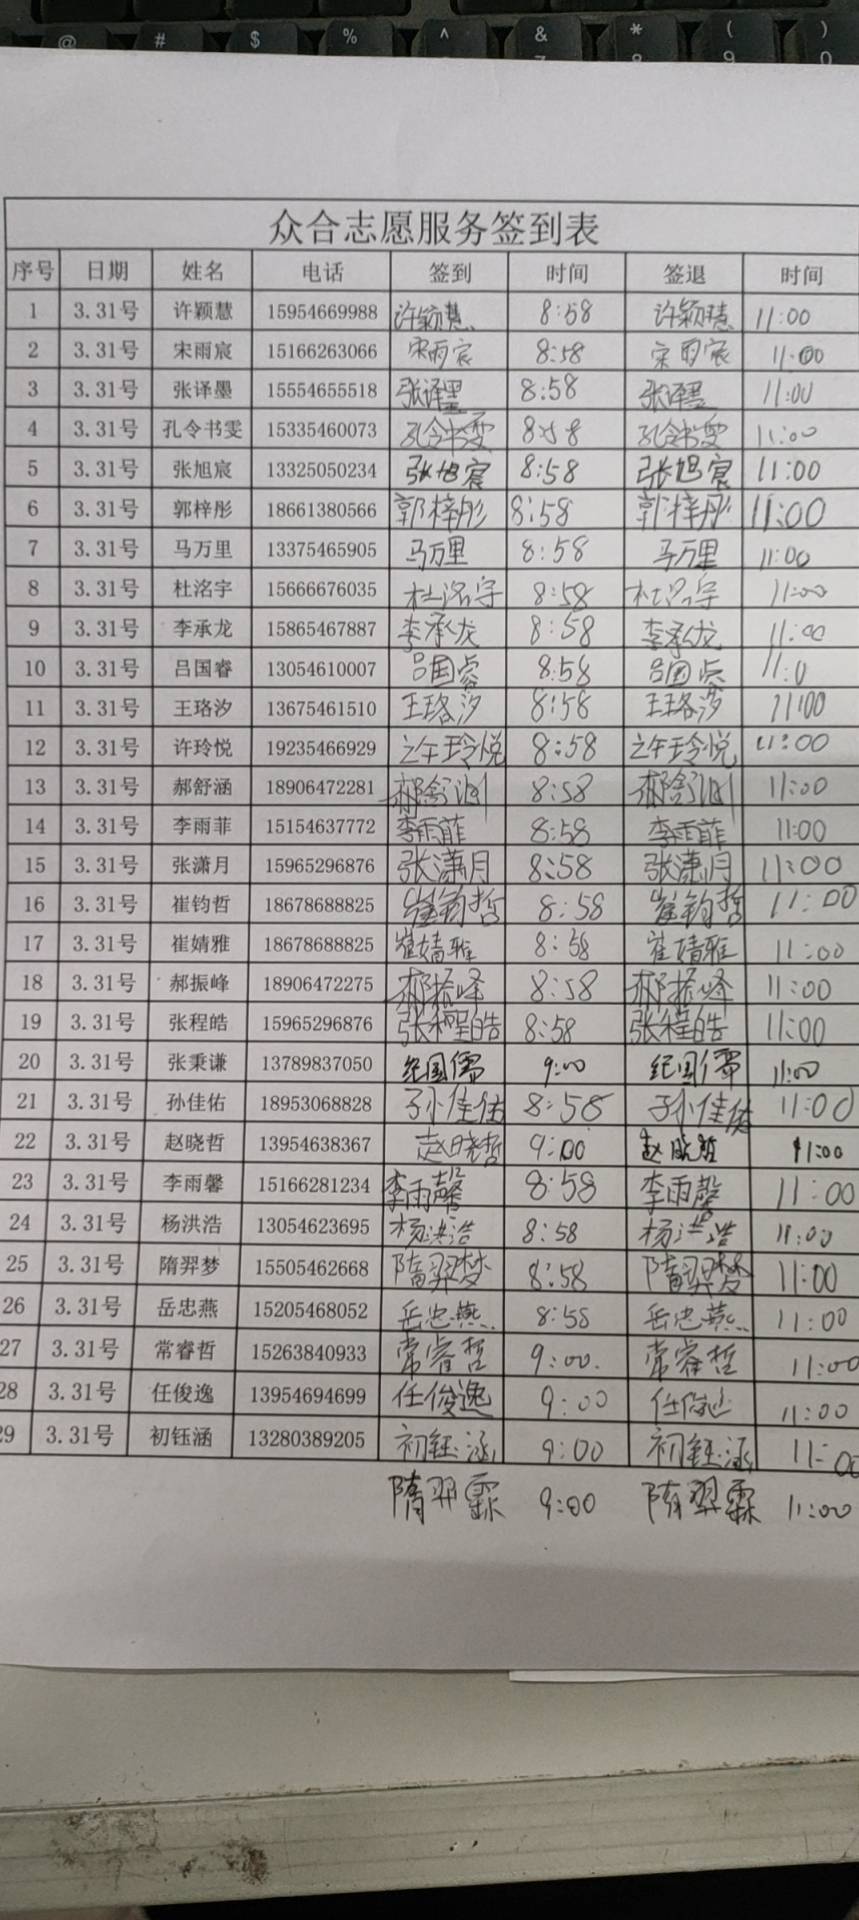 @ # $ % ^ & * ( )
众合志愿服务签到表
序号 日期 姓名 电话 签到 时间 签退 时间
1 3.31号 许颖慧 15954669988 许颖慧 8:58 许颖慧 11:00
2 3.31号 宋雨宸 15166263066 宋雨宸 8:58 宋雨宸 11:00
3 3.31号 张译墨 15554655518 张译墨 8:58 张译墨 11:00
4 3.31号 孔令书雯 15335460073 孔令书雯 8:58 孔令书雯 11:00
5 3.31号 张旭宸 13325050234 张旭宸 8:58 张旭宸 11:00
6 3.31号 郭梓彤 18661380566 郭梓彤 8:58 郭梓彤 11:00
7 3.31号 马万里 13375465905 马万里 8:58 马万里 11:00
8 3.31号 杜洺宇 15666676035 杜洺宇 8:58 杜洺宇 11:00
9 3.31号 李承龙 15865467887 李承龙 8:58 李承龙 11:00
10 3.31号 吕国睿 13054610007 吕国睿 8:58 吕国睿 11:0
11 3.31号 王珞汐 13675461510 王珞汐 8:58 王珞汐 11:00
12 3.31号 许玲悦 19235466929 许玲悦 8:58 许玲悦 11:00
13 3.31号 郝舒涵 18906472281 郝舒涵 8:58 郝舒涵 11:00
14 3.31号 李雨菲 15154637772 李雨菲 8:58 李雨菲 11:00
15 3.31号 张潇月 15965296876 张潇月 8:58 张潇月 11:00
16 3.31号 崔钧哲 18678688825 崔钧哲 8:58 崔钧哲 11:00
17 3.31号 崔婧雅 18678688825 崔婧雅 8:58 崔婧雅 11:00
18 3.31号 郝振峰 18906472275 郝振峰 8:58 郝振峰 11:00
19 3.31号 张程皓 15965296876 张程皓 8:58 张程皓 11:00
20 3.31号 张秉谦 13789837050 纪国儒 9:00 纪国儒 11:00
21 3.31号 孙佳佑 18953068828 孙佳佑 8:58 孙佳佑 11:00
22 3.31号 赵晓哲 13954638367 赵晓哲 9:00 赵晓哲 11:00
23 3.31号 李雨馨 15166281234 李雨馨 8:58 李雨馨 11:00
24 3.31号 杨洪浩 13054623695 杨洪浩 8:58 杨洪浩 11:00
25 3.31号 隋羿梦 15505462668 隋羿梦 8:58 隋羿梦 11:00
26 3.31号 岳忠燕 15205468052 岳忠燕 8:58 岳忠燕 11:00
27 3.31号 常睿哲 15263840933 常睿哲 9:00 常睿哲 11:00
28 3.31号 任俊逸 13954694699 任俊逸 9:00 任俊逸 11:00
29 3.31号 初钰涵 13280389205 初钰涵 9:00 初钰涵 11:00
隋羿霖 9:00 隋羿霖 11:00